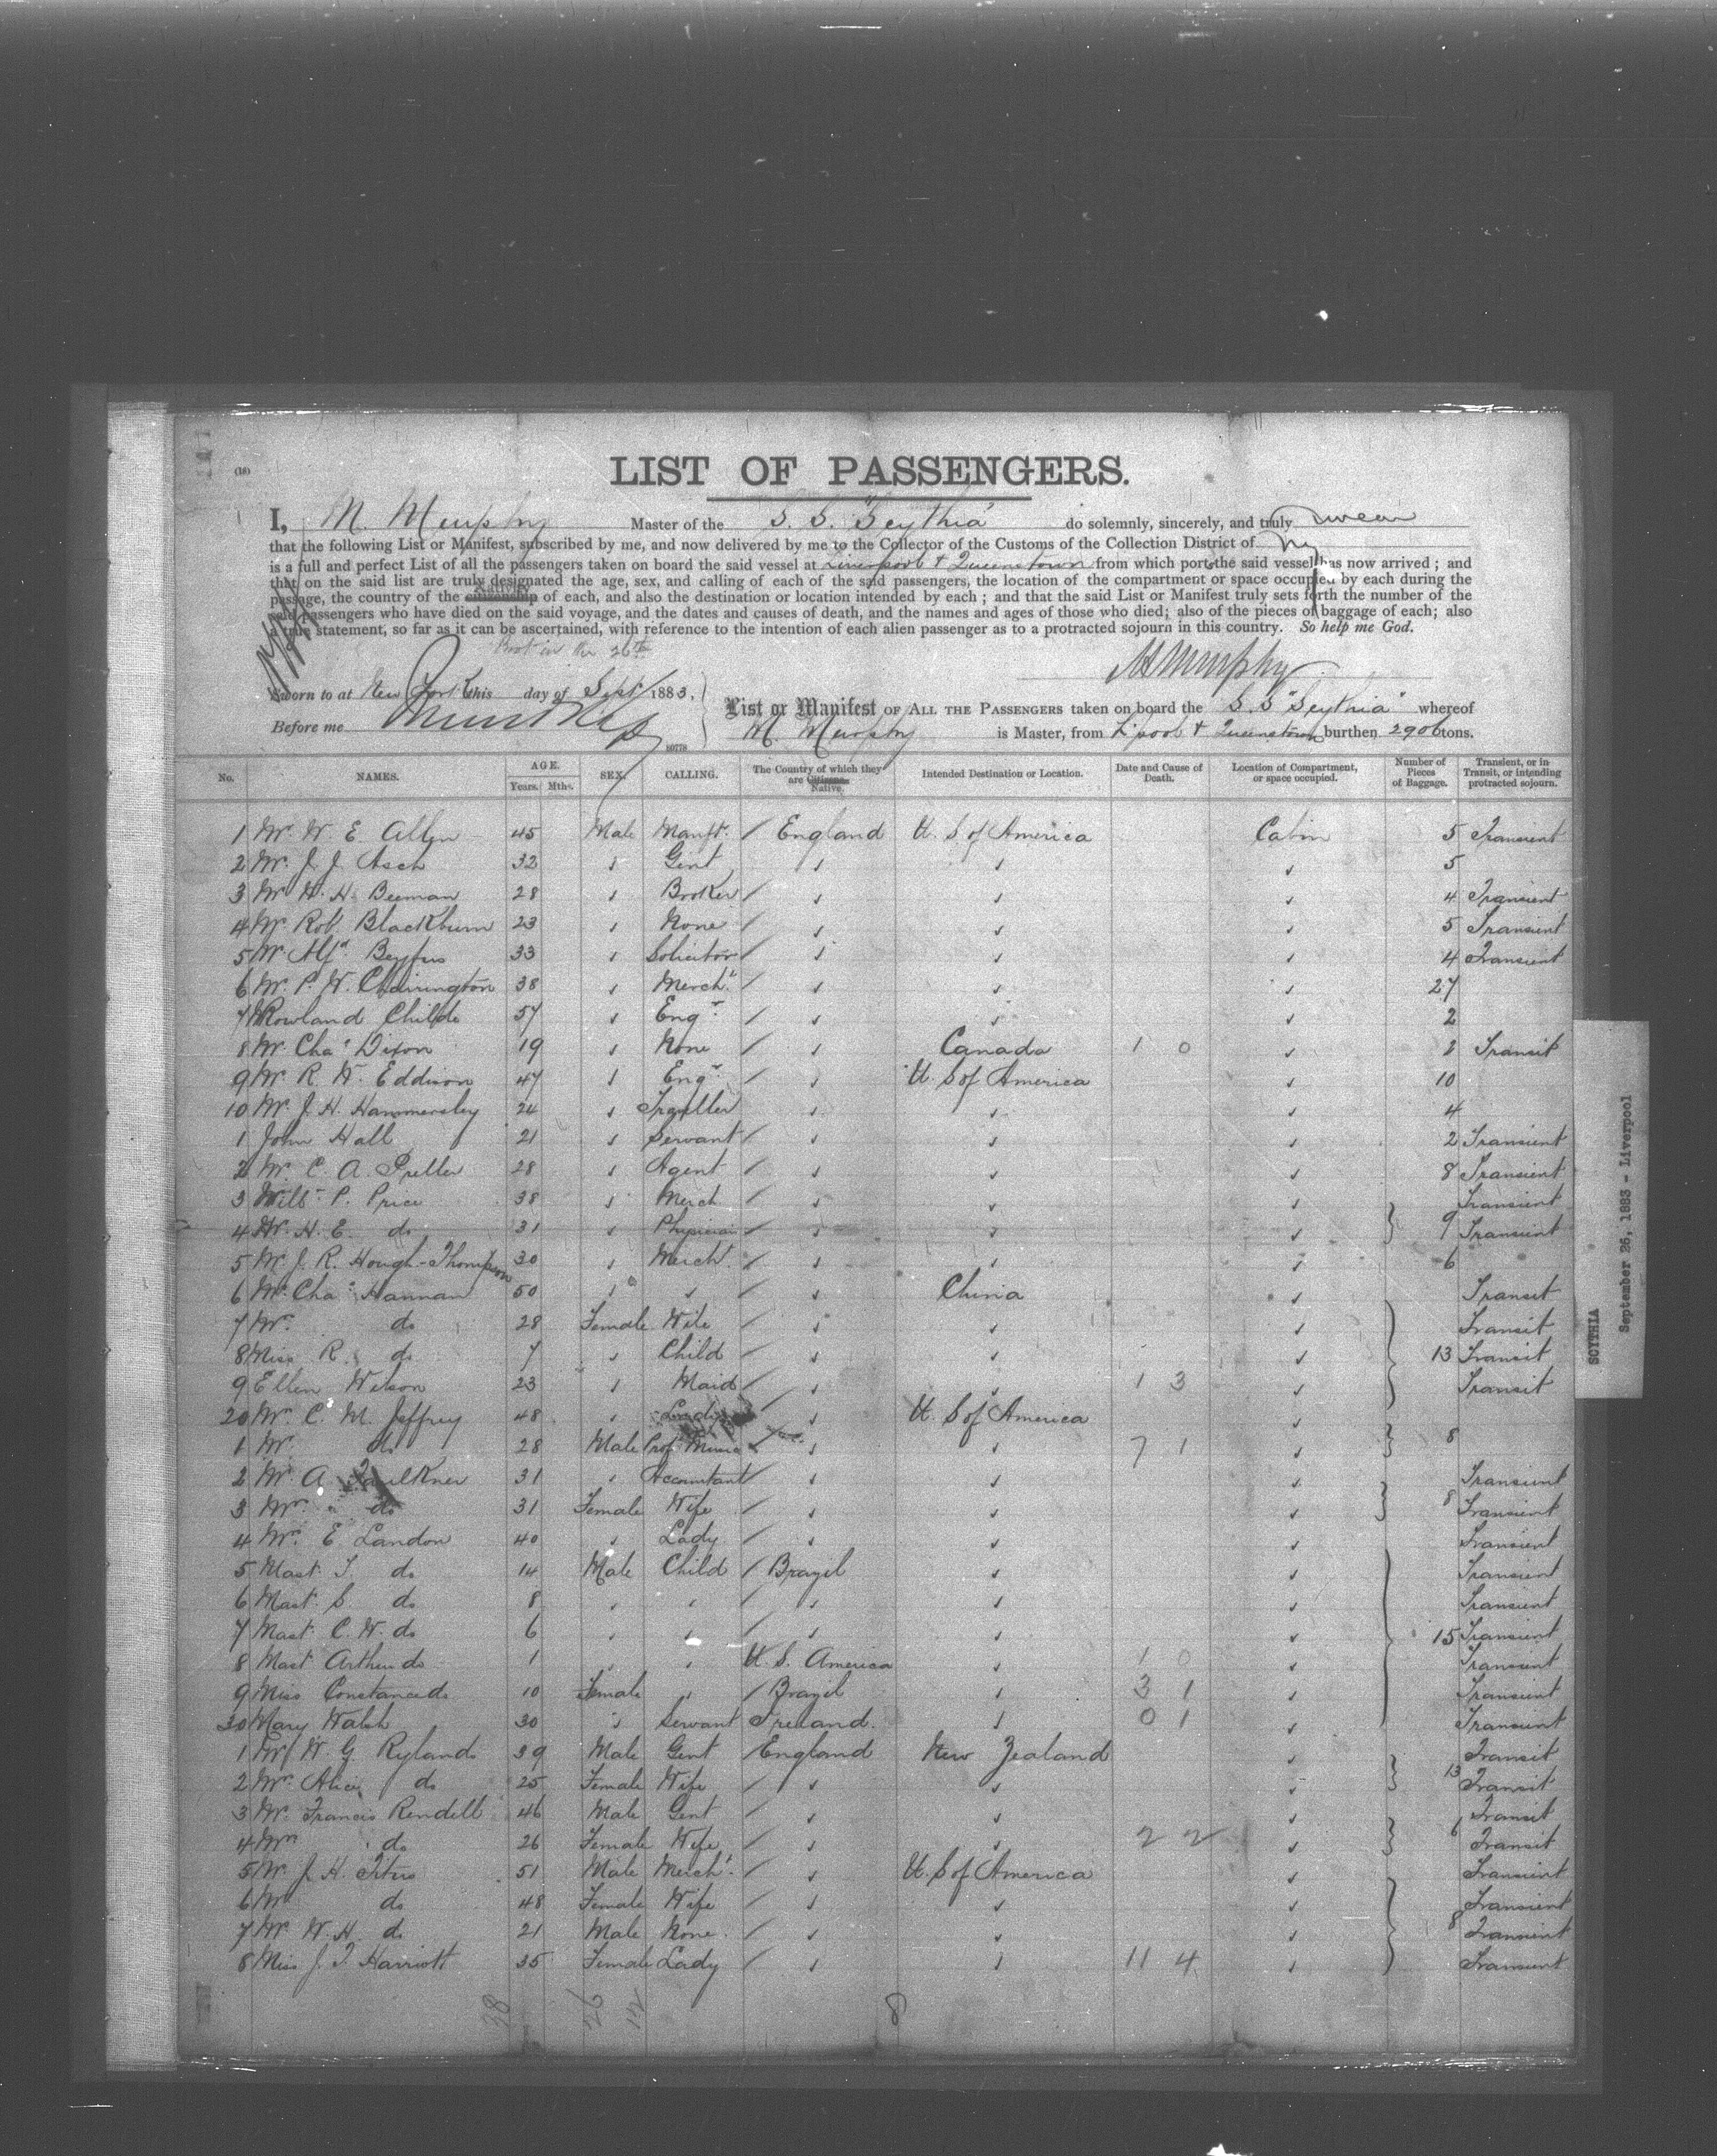 (16)
LIST OF PASSENGERS.
I, M. Murphy Master of the S. S. "Scythia" do solemnly, sincerely, and truly swear
that the following List or Manifest, subscribed by me, and now delivered by me to the Collector of the Customs of the Collection District of NY
is a full and perfect List of all the passengers taken on board the said vessel at Liverpool & Queenstown from which port the said vessel has now arrived ; and
that on the said list are truly designated the age, sex, and calling of each of the said passengers, the location of the compartment or space occupied by each during the
Native
passage, the country of the citizenship of each, and also the destination or location intended by each ; and that the said List or Manifest truly sets forth the number of the
said passengers who have died on the said voyage, and the dates and causes of death, and the names and ages of those who died; also of the pieces of baggage of each; also
a true statement, so far as it can be ascertained, with reference to the intention of each alien passenger as to a protracted sojourn in this country. So help me God.
26th
M Murphy
Sworn to at New York this day of Sept 1883,
List or Manifest OF ALL THE PASSENGERS taken on board the S. S "Scythia" whereof
Before me
M. Murphy is Master, from L'pool & Queenstown burthen 2906 tons.
80778
No. NAMES. AGE. Years. Mths. SEX. CALLING. The Country of which they are Citizens. Native. Intended Destination or Location. Date and Cause of Death. Location of Compartment, or space occupied. Number of Pieces of Baggage. Transient, or in Transit, or intending protracted sojourn.
1 Mr. W. E. Allen 45 Male Manft. / England U. S of America Cabin 5 Transient
2 Mr. J. J. Asch 32 " Gent " " " 5
3 Mr H. H. Beeman 28 " Broker / " " " 4 Transient
4 Mr Rob. Blackburn 23 " None / " " " 5 Transient
5 Mr Alfd. Beyfus 33 " Solicitor / " " " 4 Transient
6 Mr. P. W. Charrington 38 " Mercht. / " " " 27
7 Mr Rowland Childe 57 " Engr. / " " " 2
8 Mr. Chas. Dixon 19 " None / " Canada 1 0 " 2 Transit
9 Mr R. W. Eddison 47 " Engr. / " U. S of America " 10
10 Mr. J. H. Hammersley 24 " Traveller " " " 4
1 John Hall 21 " Servant / " " " 2 Transient
2 Mr. C. A. Preller 28 " Agent / " " " 8 Transient
3 Willm. P. Price 38 " Merch / " " " Transient
4 Mr. H. E. do 31 " Physician / " " " 9 Transient
5 Mr J. R. Hough-Thompson 30 " Mercht. / " " " 6
6 Mr Chas. Hannan 50 " " " China " Transit
7 Mrs. do 28 Female Wife " " " Transit
8 Miss R. do 7 " Child " " " 13 Transit
9 Ellen Wilson 23 " Maid / " " 1 3 " Transit
20 Mrs C. M. Jeffrey 48 " Lady " U. S of America "
1 Mr. do 28 Male Prof. Music " " 7 1 " 8
2 Mr A. Faulkner 31 " Accountant / " " " Transient
3 Mrs do 31 Female Wife / " " " 8 Transient
4 Mrs. E Landon 40 " Lady / " " " Transient
5 Mast. T. do 14 Male Child / Brazil " " Transient
6 Mast. S. do 8 " " / " " " Transient
7 Mast. C. W. do 6 " " / " " " 15 Transient
8 Mast Arthur do 1 " " U. S. America " 1 0 " Transient
9 Miss Constance do 10 Female " / Brazil " 3 1 " Transient
30 Mary Walsh 30 " Servant Ireland. " 0 1 " Transient
1 Mr W. G. Rylands 39 Male Gent / England New Zealand " Transit
2 Mrs. Alice do 25 Female Wife / " " " 13 Transit
3 Mr. Francis Rendell 46 Male Gent / " " " Transit
4 Mrs do 26 Female Wife / " " 2 2 " 6 Transit
5 Mr J. H. Titus 51 Male Mercht. / " U. S of America " Transient
6 Mrs do 48 Female Wife / " " " Transient
7 Mr. W. H. do 21 Male None. / " " " 8 Transient
8 Miss J. T. Harriott 35 Female Lady / " " 11 4 " Transient
38 26 12 8
SCYTHIA
September 26, 1883 - Liverpool